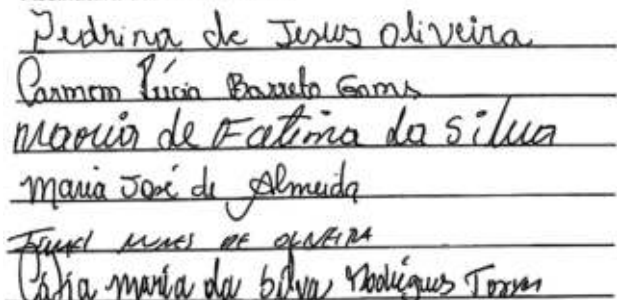 Pedrina de Jesus Oliveira
Carmem Lúcia Barreto Goms
Maria de Fatima da Silva
Maria José de Almeida
NUNES DE OLIVEIRA
Cátia maria da Silva Rodrigues Torres